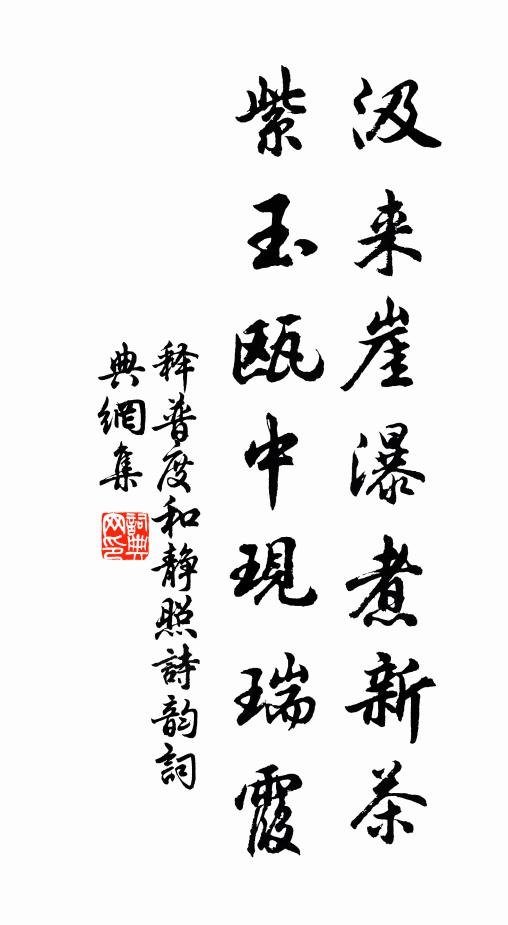 汲来崖瀑煮新茶
紫玉瓯中現瑞霞
释普度和静照詩韵詞
典網集
詞典
网印